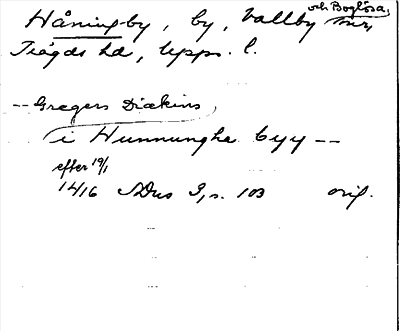 Håningby, by, Vallby och Boglösa snr,
Trögds hd, Upps. l.
-- Gregers Diækins
i Hunnunghe byy --
efter 19/1
1416 SDns 3, s. 103 orig.